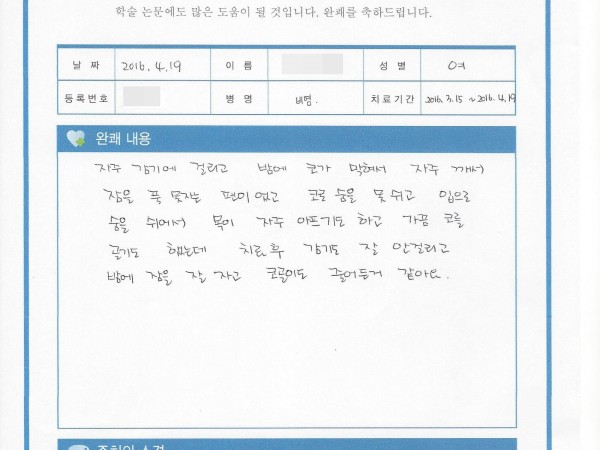 학술 논문에도 많은 도움이 될 것입니다. 완쾌를 축하드립니다.
날 짜 2016. 4. 19 이 름 성 별 여
등록번호 병 명 비염. 치료기간 2016. 3. 15 ~ 2016. 4. 19
완쾌 내용
자주 감기에 걸리고 밤에 코가 막혀서 자주 깨서
잠을 푹 못자는 편이었고 코로 숨을 못 쉬고 입으로
숨을 쉬어서 목이 자주 아프기도 하고 가끔 코를
골기도 했는데 치료 후 감기도 잘 안걸리고
밤에 잠을 잘 자고 코골이도 줄어든거 같아요.